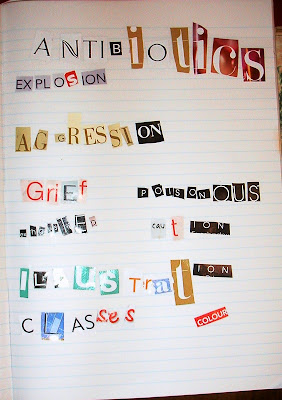 ANTIBiOtiCS
EXPLOSION
AGGRESSION
Grief POISONOUS
cautION
ILLUSTRatION
CLASses COLOUR